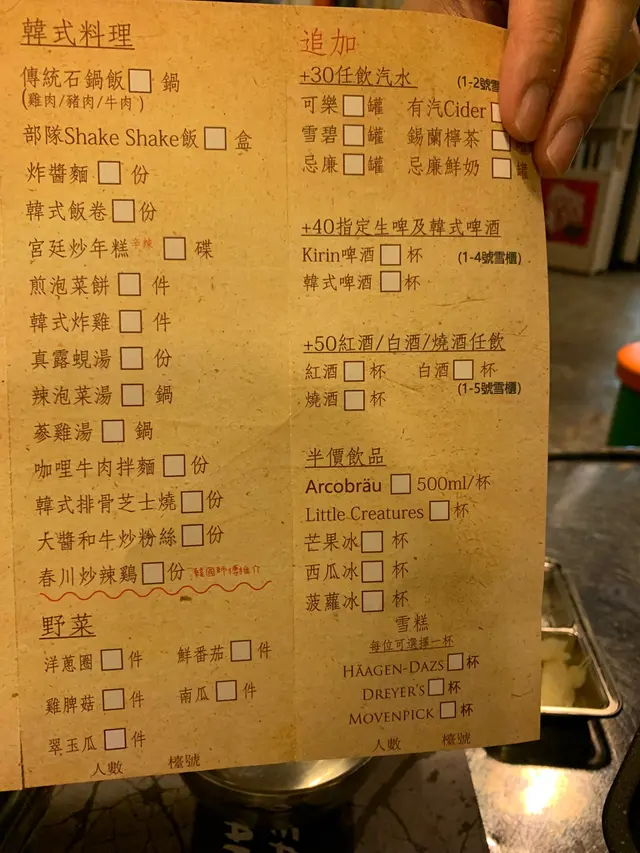 韓式料理
傳統石鍋飯 鍋
(雞肉/豬肉/牛肉)
部隊Shake Shake飯 盒
炸醬麵 份
韓式飯卷 份
宮廷炒年糕辛辣 碟
煎泡菜餅 件
韓式炸雞 件
真露蜆湯 份
辣泡菜湯 鍋
蔘雞湯 鍋
咖哩牛肉拌麵 份
韓式排骨芝士燒 份
大醬和牛炒粉絲 份
春川炒辣鷄 份 韓國師傅推介
野菜
洋蔥圈 件 鮮番茄 件
雞脾菇 件 南瓜 件
翠玉瓜 件
人數 檯號
追加
+30任飲汽水 (1-2號雪
可樂 罐 有汽Cider
雪碧 罐 錫蘭檸茶 罐
忌廉 罐 忌廉鮮奶 罐
+40指定生啤及韓式啤酒
Kirin啤酒 杯 (1-4號雪櫃)
韓式啤酒 杯
+50紅酒/白酒/燒酒任飲
紅酒 杯 白酒 杯
燒酒 杯 (1-5號雪櫃)
半價飲品
Arcobräu 500ml/杯
Little Creatures 杯
芒果冰 杯
西瓜冰 杯
菠蘿冰 杯
雪糕
每位可選擇一杯
HÄAGEN-DAZS 杯
DREYER'S 杯
MOVENPICK 杯
人數 檯號